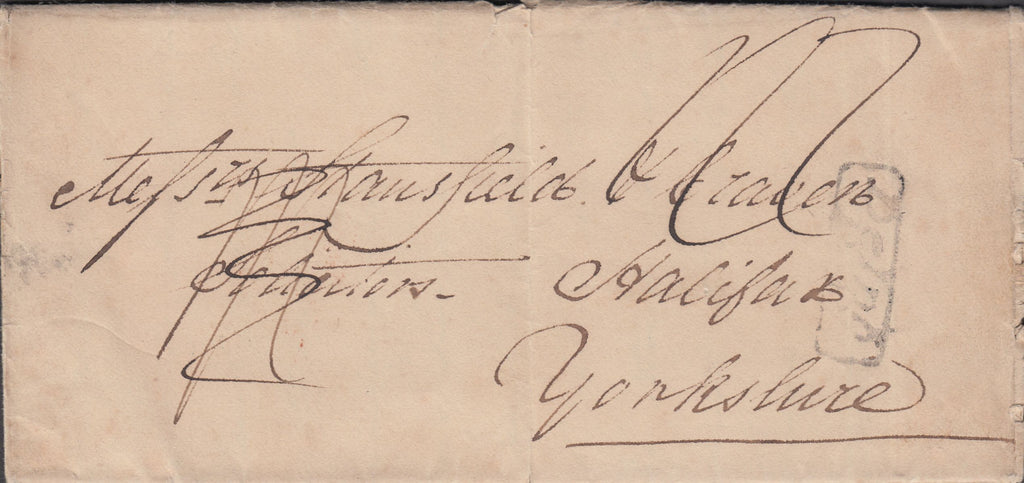 Messrs Stansfield & Craven
Solicitors - Halifax
Yorkshire